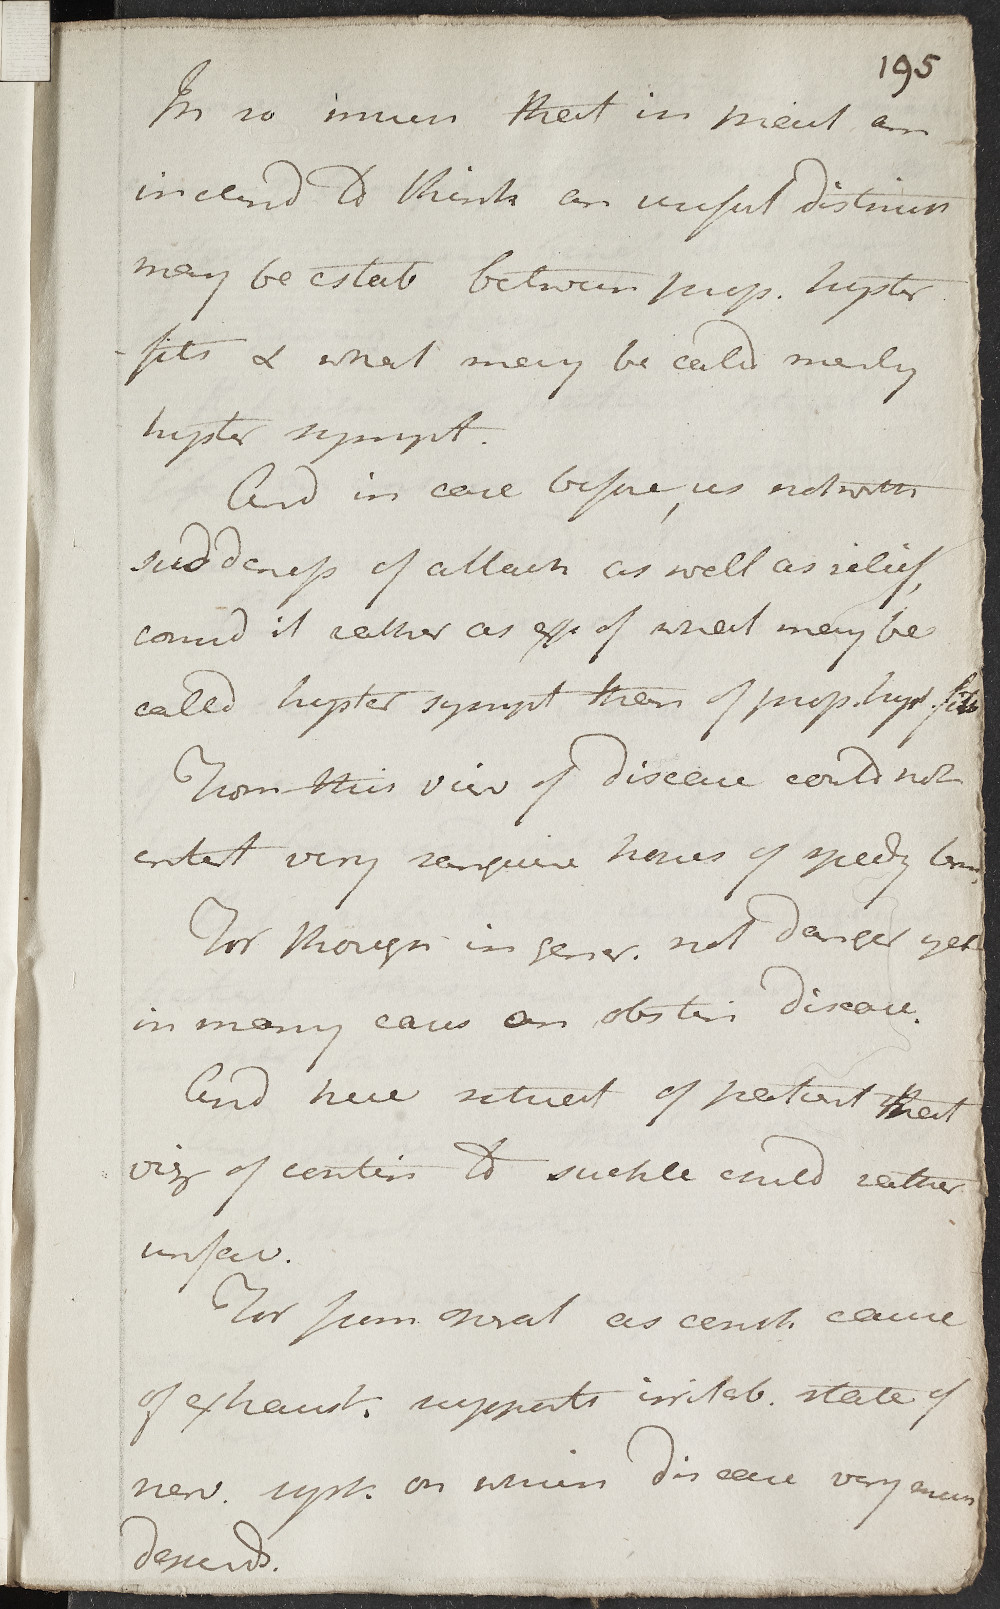 195
In so much that in pract am
inclind to think an useful distinct
may be estab between prop. hyster
fits & what may be calld merly
hyster sympt.
And in case before us notwith
suddeness of attack as well as relief,
consid it rather as of what may be
called hyster sympt then of prop. hyst. fits
From this view of disease could not
entert very sanguine hopes of speedy term
For though in gener. not danger yet
in many cases an obstin disease.
And here situat of patient that
viz of contin to suckle consid rather
unfav.
For from as const. cause
of exhaust. supports irritab. state of
nerv. syst. on which disease very much
depends.